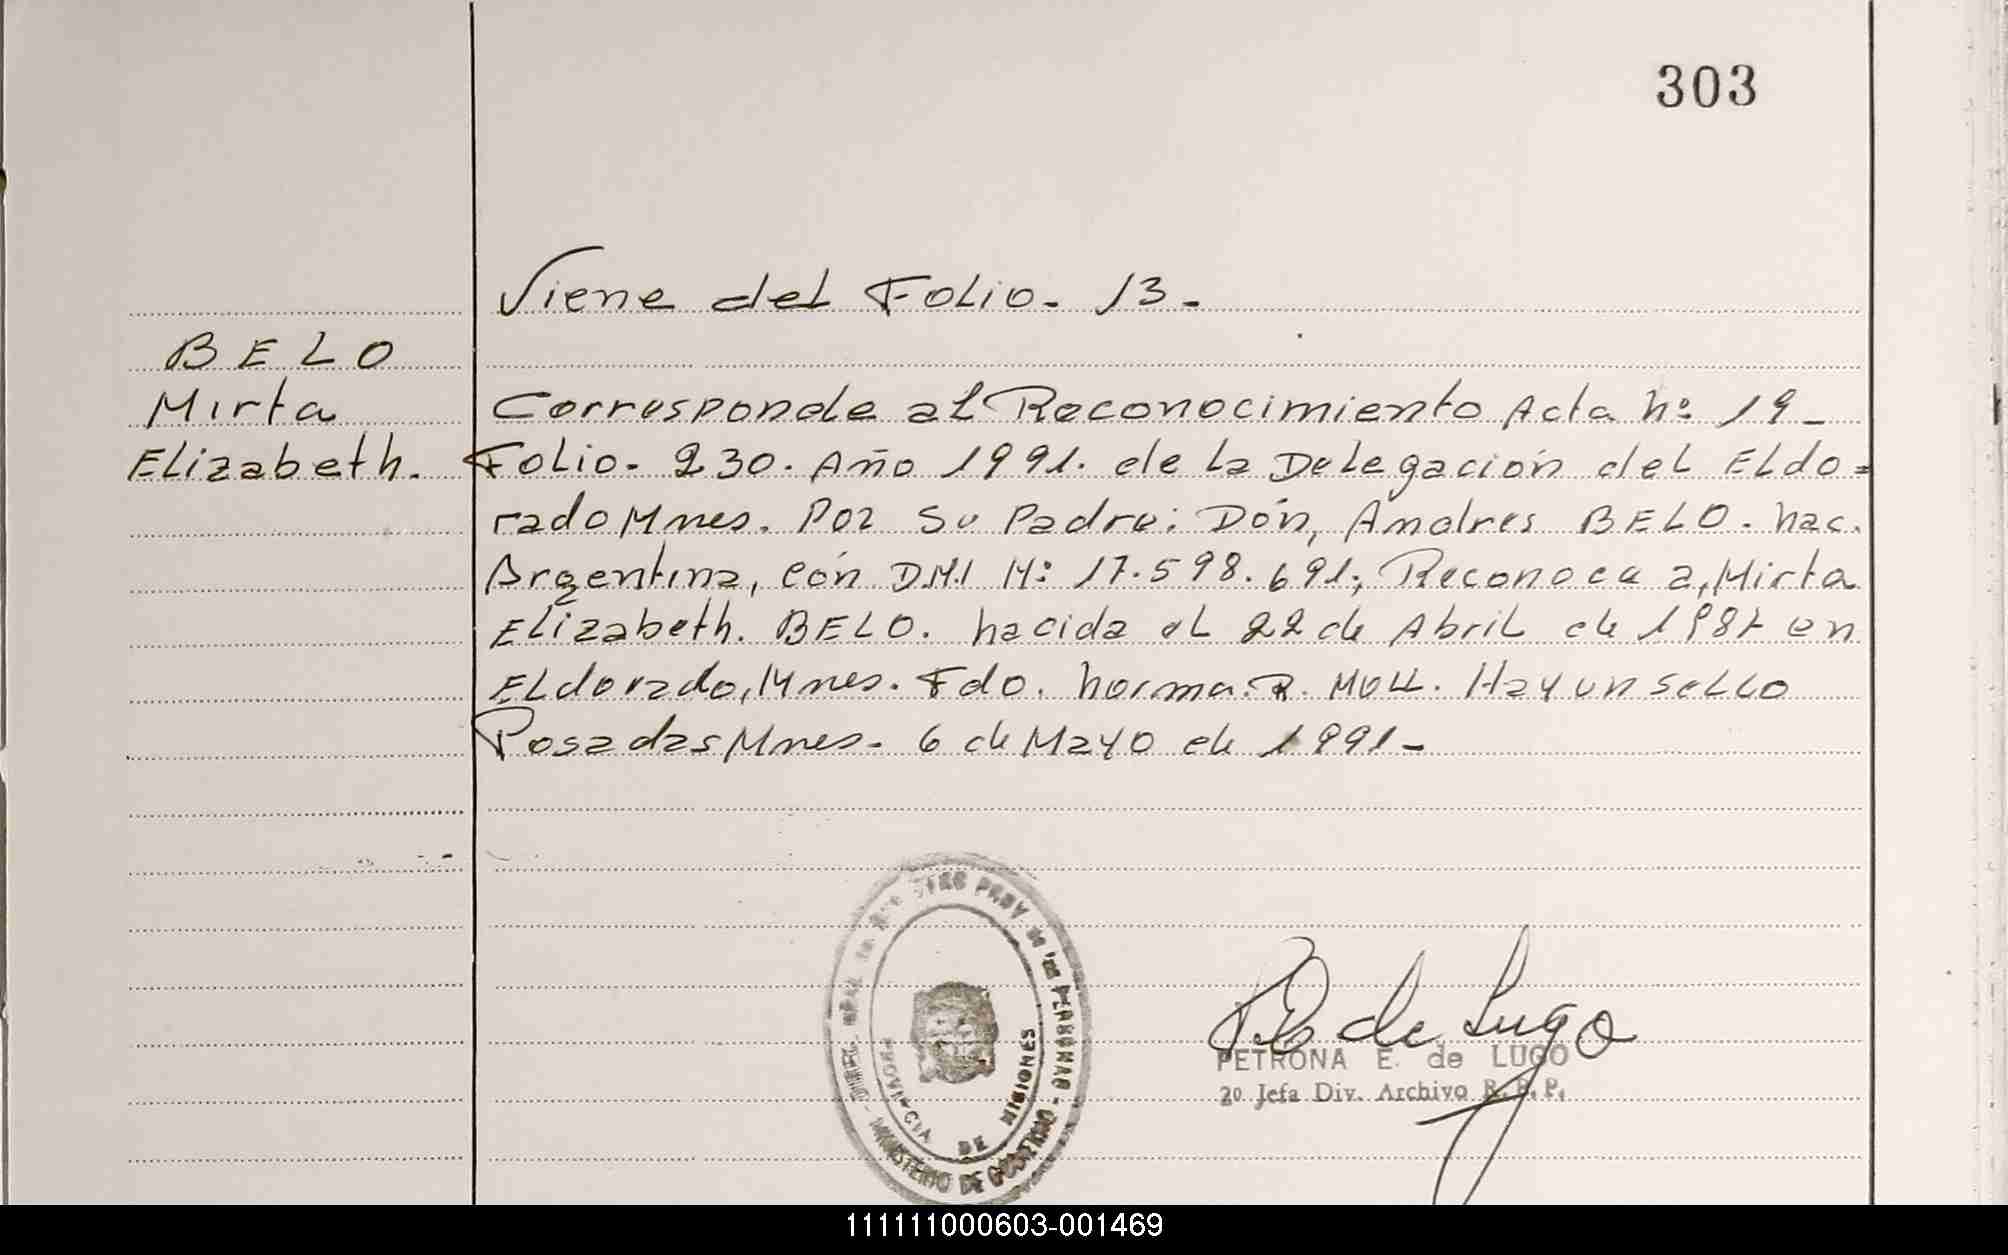 303
Viene del Folio. 13-
BELO
Mirta
Elizabeth.
Corresponde al Reconocimiento Acta Nº 19-
Folio. 230. Año 1991. de la Delegación del Eldo=
rado Mnes. Por su Padre: Dón, Andres BELO. nac.
Argentina, cón D.N.I Nº 17.598.691; Reconoce a, Mirta
Elizabeth. BELO. nacida el 22 de Abril de en
Eldorado, Mnes. Fdo. Norma. R. MOLL. Hay un sello
Posadas Mnes- 6 de Mayo de 1991-
PROV. DE LAS PERSONAS - MINISTERIO DE GOBIERNO
PROVINCIA DE MISIONES
de Lugo
PETRONA E. de LUGO
2º Jefa Div. Archivo R. P. P.
111111000603-001469